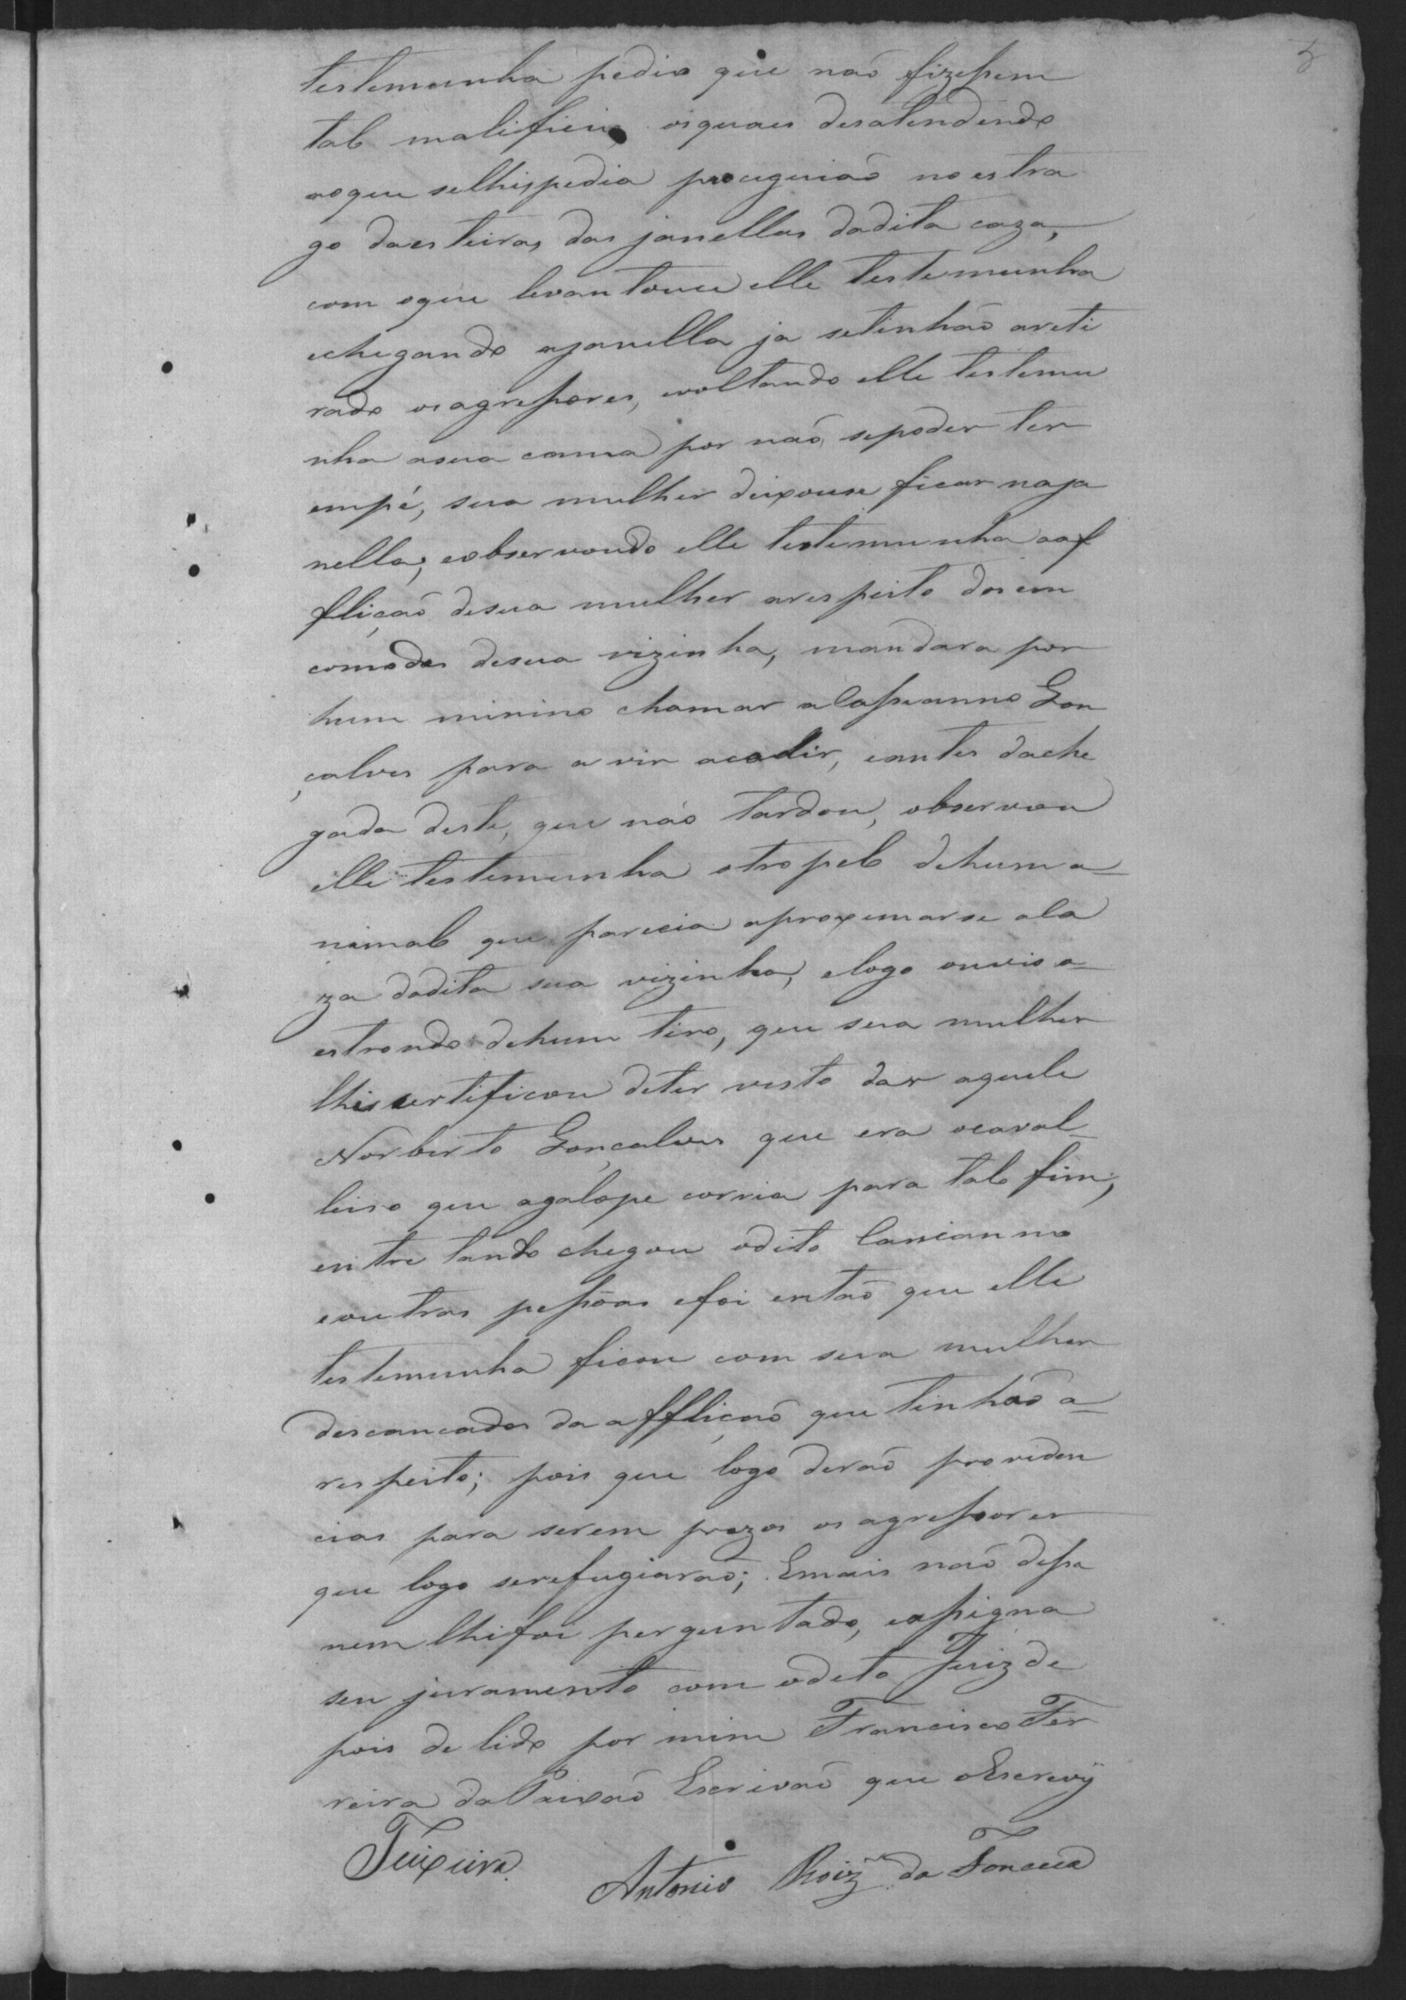 testemunha pedia que naõ fizessem
tal maleficio, os quaes desatendendo
aoque selhispedia proceguiaõ no estra
go daesteiras das janellas dadita caza,
com oque levantouce elle testemunha
echegando ajanella ja setinhaõ areti
rado osagressores, evoltando elle testemu
nha asua cama por naõ sepoder ter
empé, sua mulher deixouse ficar naja
nella; eobservando elle testemunha aaf
fliçaõ desua mulher arespeito dosem
comodos desua vizinha, mandara por
hum minino chamar a Casseanno Gon
çalves para a vir acodir, eantes dache
gada deste, que náo tardou, observou
elle testemunha otropel dehum a=
nimal que parecia aproxemarse aca
za dadita sua vizinha, elogo ouvio o=
estrondo dehum tiro, que sua mulher
lhiscertificou deter visto dar aquele
Norberto Gonçalves que era ocaval=
leiro que agalope corria para tal fim;
entre tando chegou odito Cancianno
eoutras pessoas efoi entaõ que elle
testemunha ficou com sua mulher
descancados da afflicaõ que tinhaõ a=
respeito; pois que logo deraõ providen
cias para serem prezos os agressores
que logo serefugiaraõ; Emais naõ dessa
nem lhifoi perguntado, eassigna
seu juramento com odeto Juiz de
pois de lido por mim Francisco Fer
reira daPaixaõ Escrivaõ que oEscrevÿ
Teixeira Antonio Roiz da Fonceca